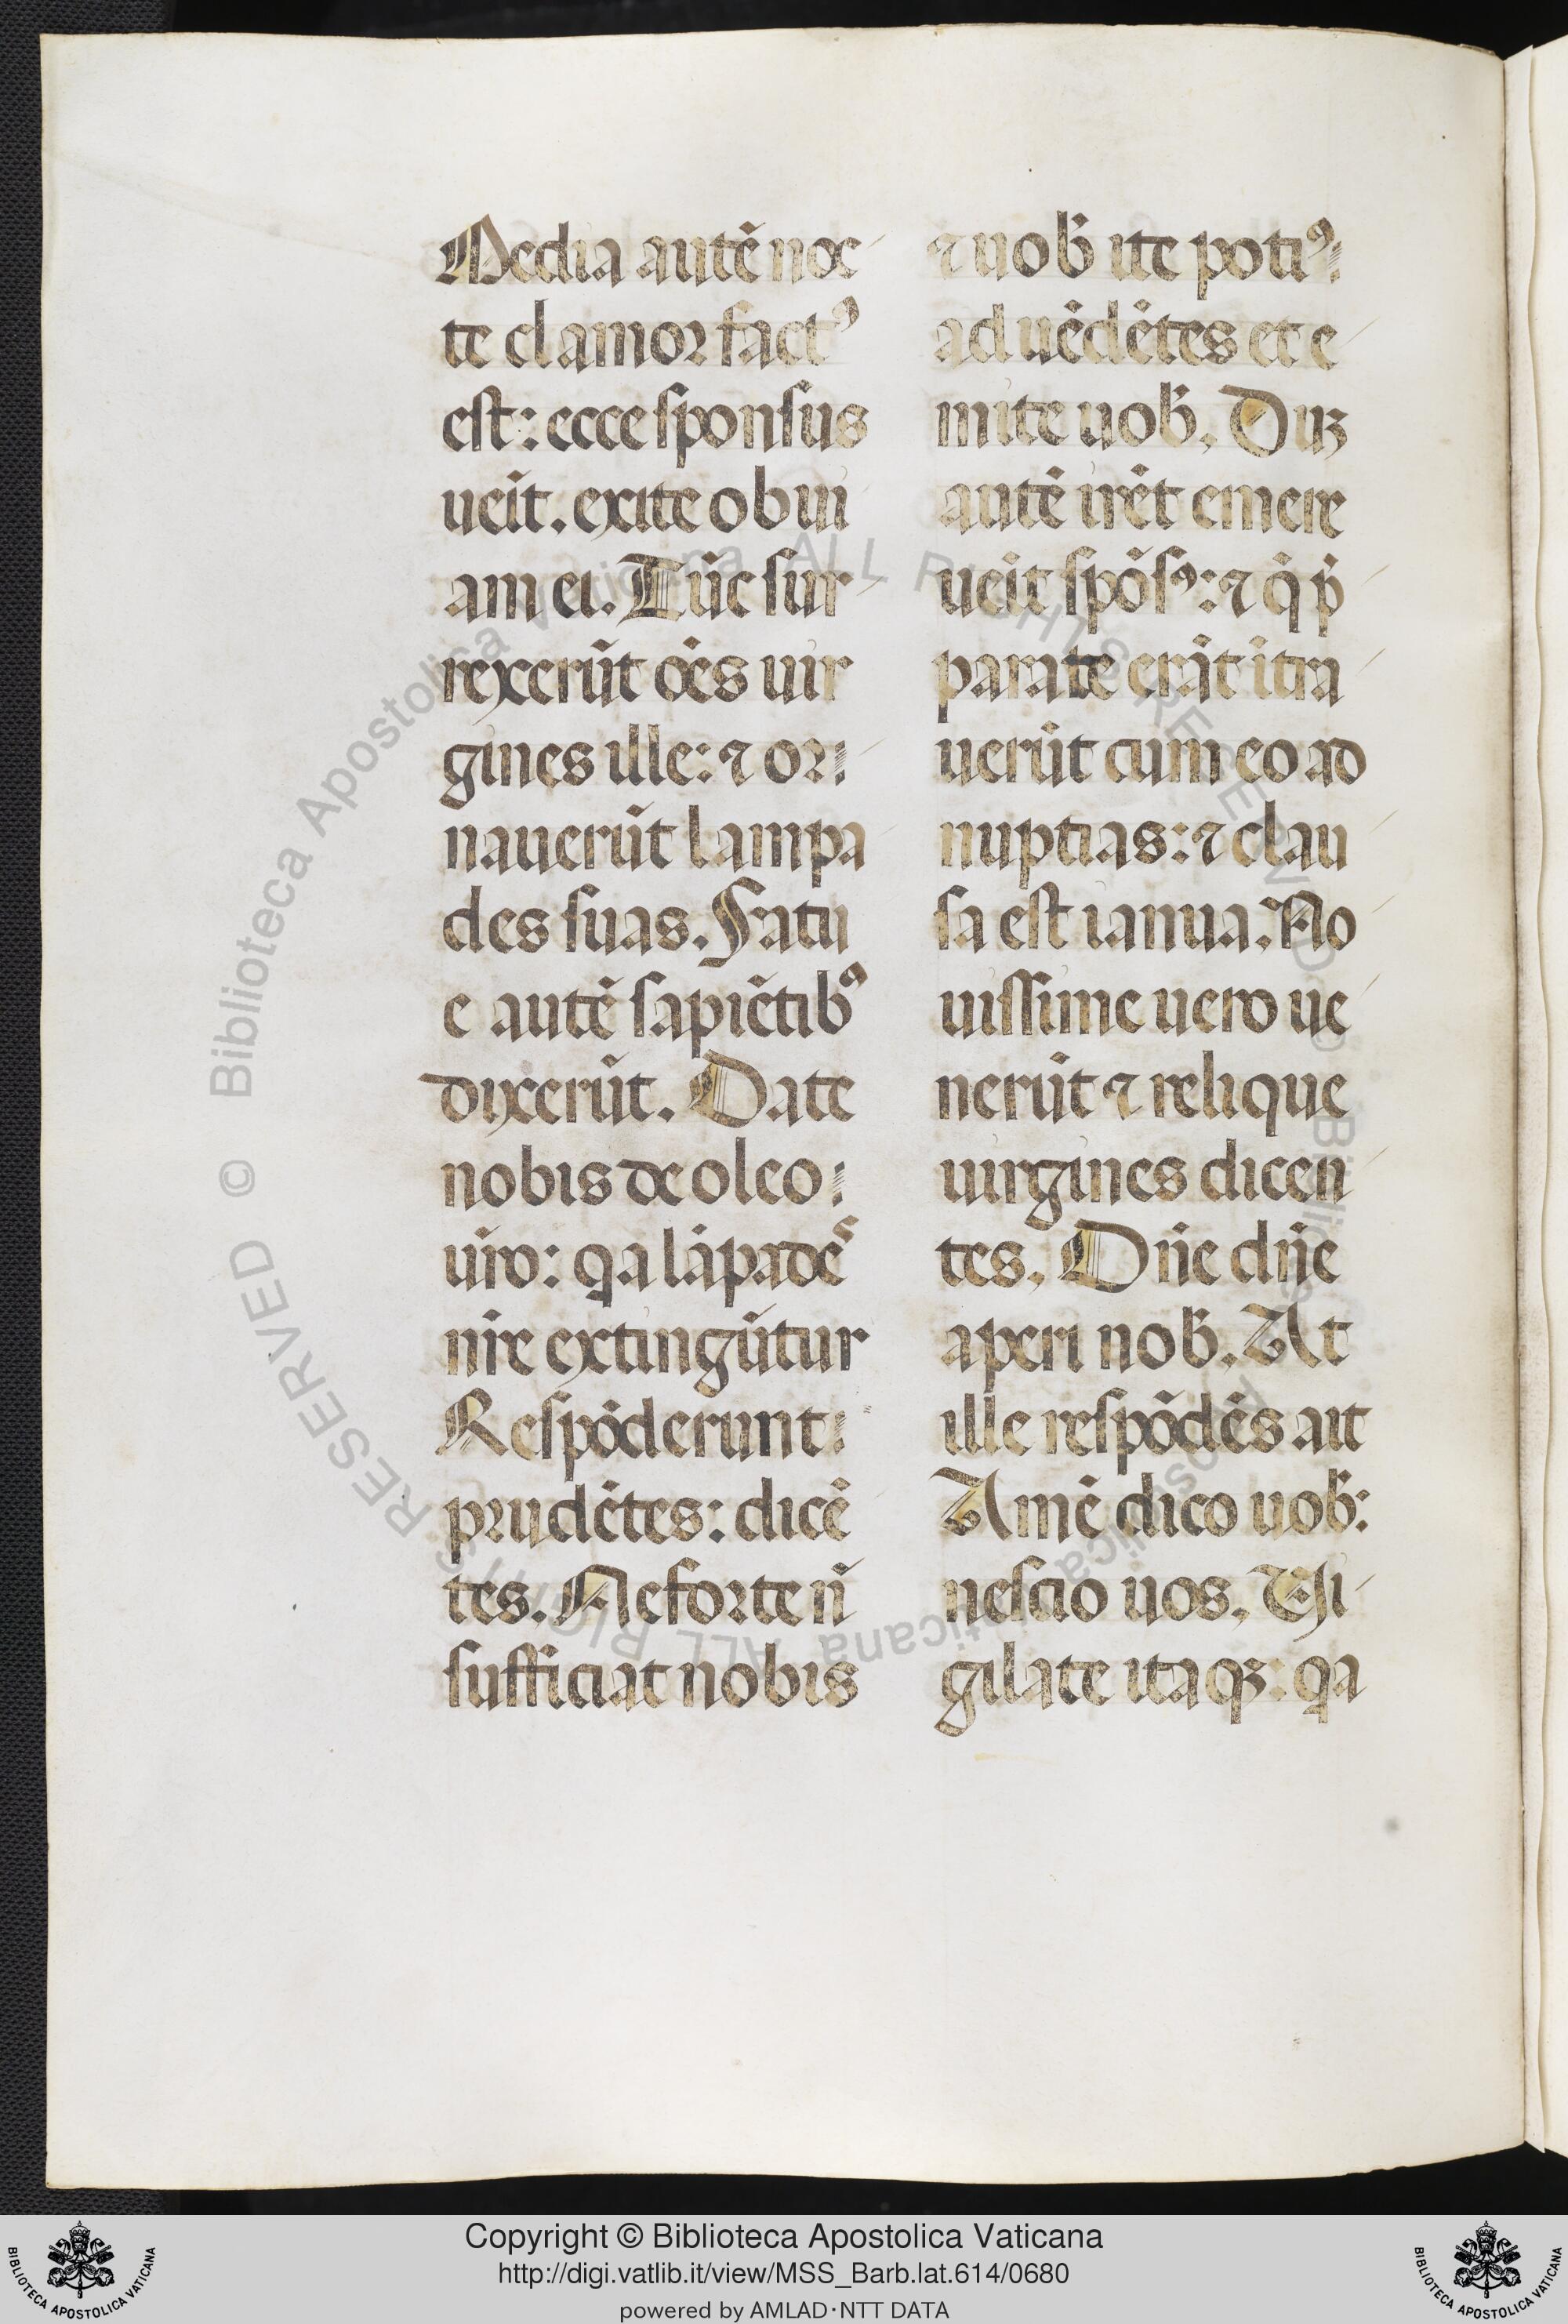 Media autē noc
te clamor factꝰ
est: ecce sponsus
ueīt. exite obui
am ei. Tūc sur
rexerūt oēs uir
gines ille: ⁊ or
nauerūt lampa
des suas. Fatu
e autē sapiētibꝰ
dixerūt. Date
nobis de oleo
ur̄o: qa lāpadēs
nr̄e extingūtur
Respōderunt
prudētes: dicē
tes. Ne forte n̄
sufficiat nobis
⁊ uob̄ ite potiꝰ
ad uēdētes et e
mite uob̄. Duꝫ
autē irēt emere
ueīt spōsꝰ: ⁊ q̄ p̄
parate erāt itra
uerūt cum eo ad
nuptias: ⁊ clau
sa est ianua. No
uissime uero ue
nerūt ⁊ relique
uirgines dicen
tes. Dn̄e dn̄e
aperi nob̄. At
ille respōdēs ait
Amē dico uob̄:
nescio uos. Vi
gilate itaqꝫ: qa
© Biblioteca Apostolica Vaticana ALL RIGHTS RESERVED
Copyright © Biblioteca Apostolica Vaticana
http://digi.vatlib.it/view/MSS_Barb.lat.614/0680
powered by AMLAD·NTT DATA
BIBLIOTECA APOSTOLICA VATICANA
BIBLIOTECA APOSTOLICA VATICANA